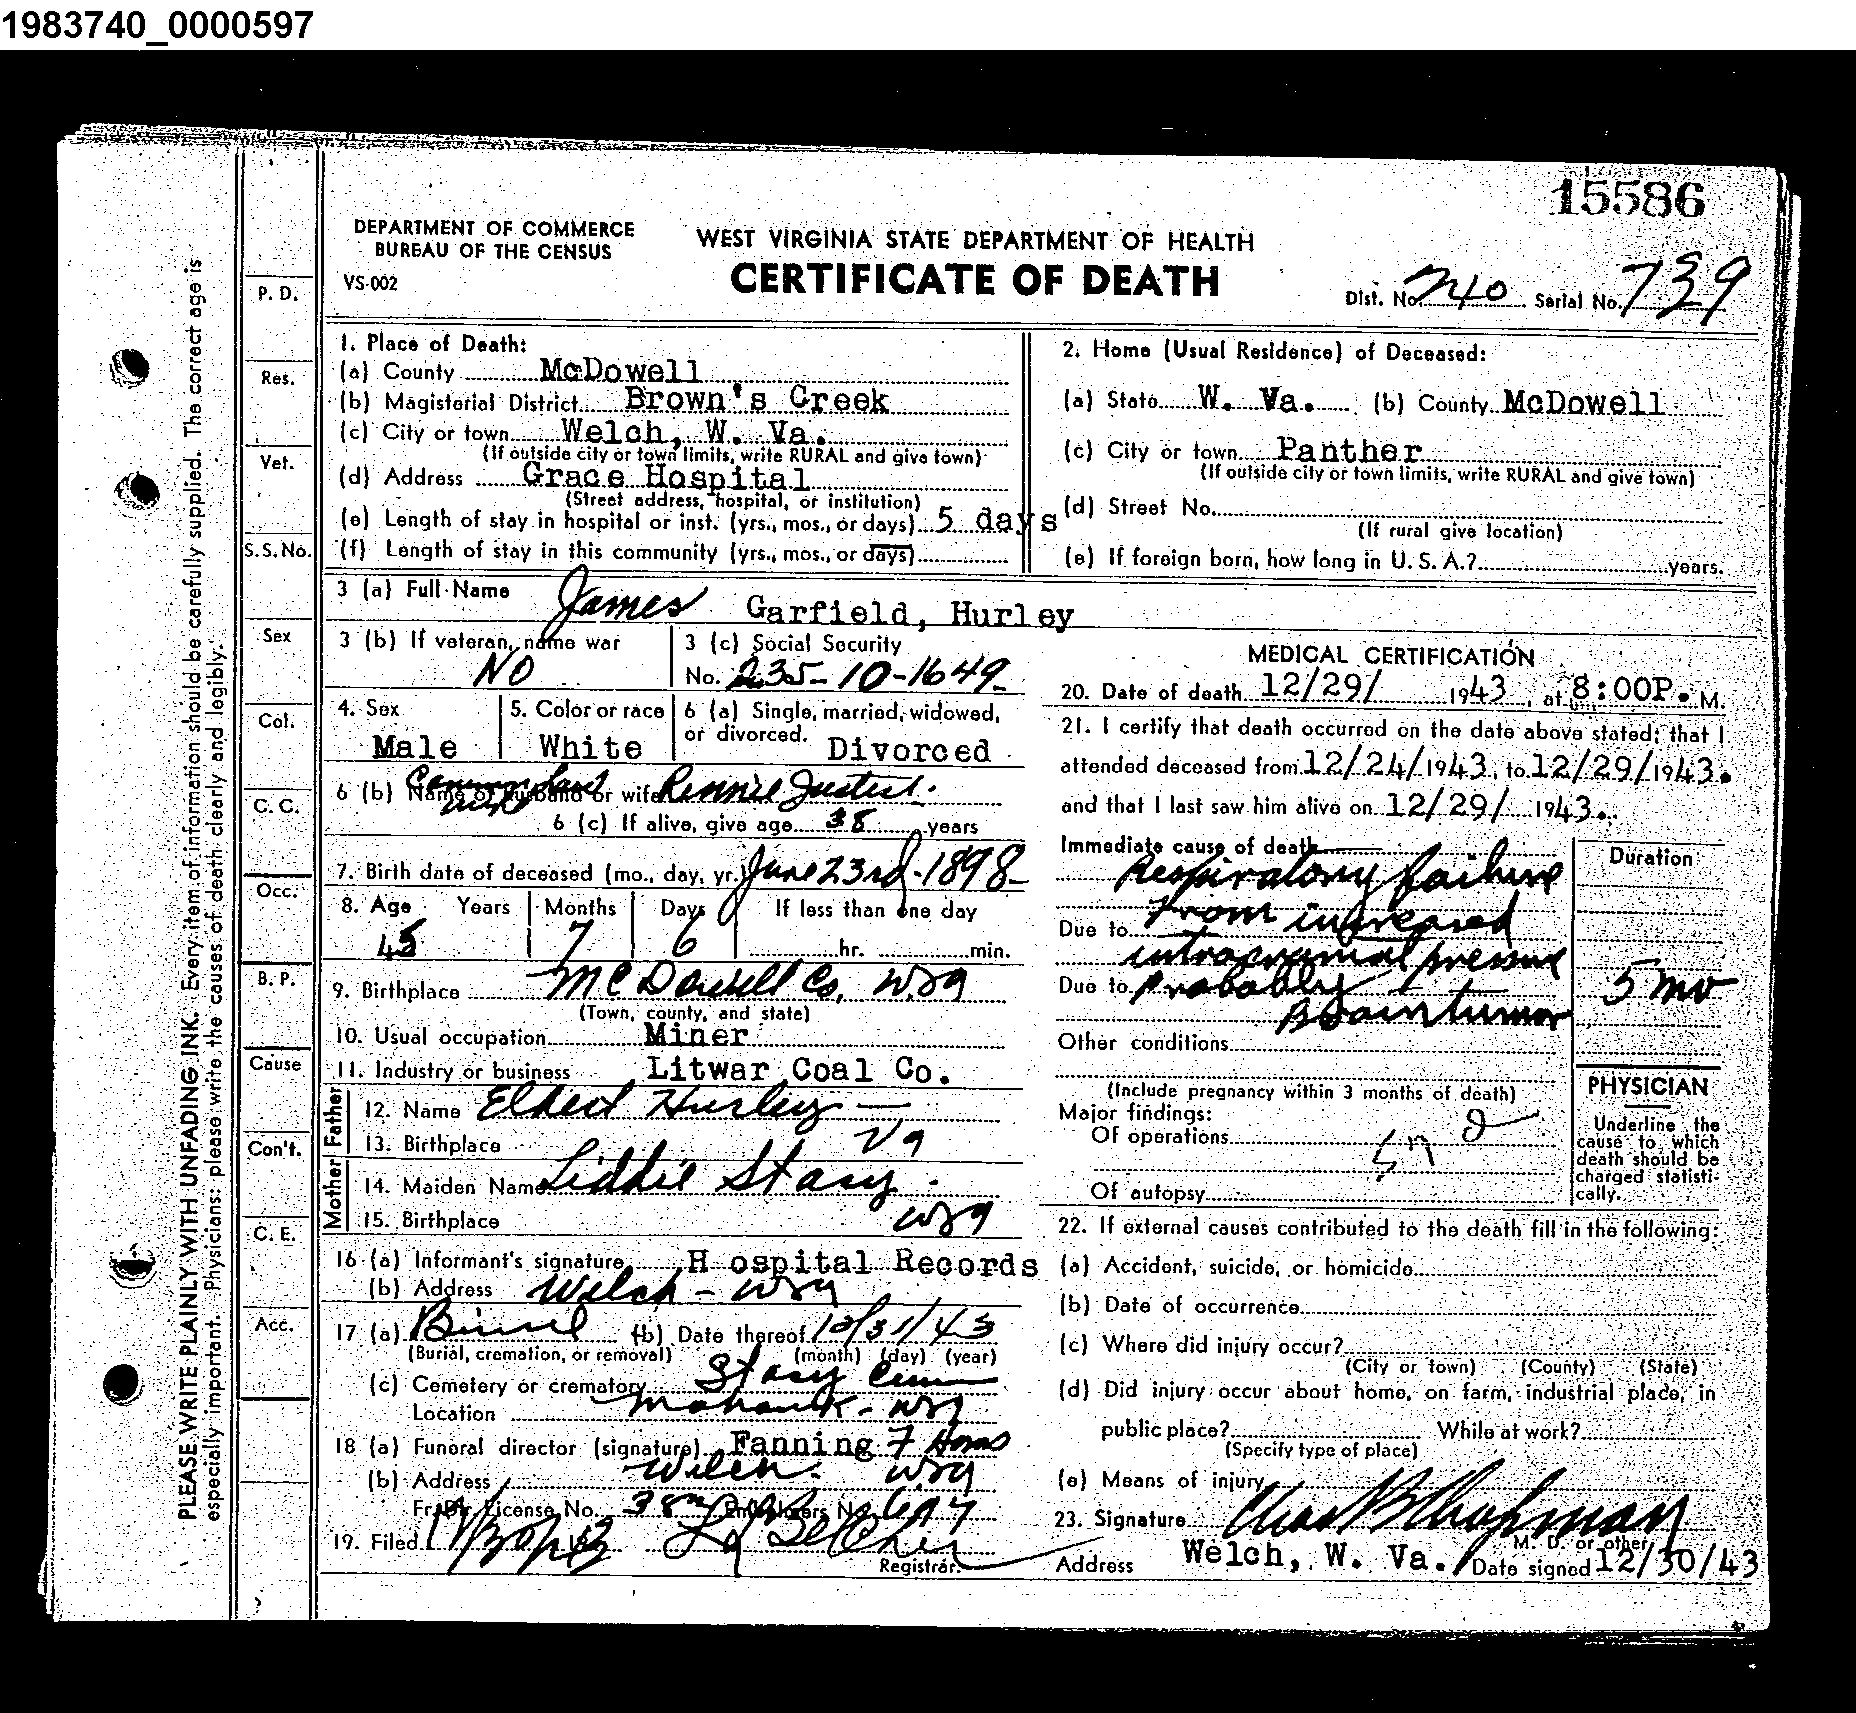 1983740_0000597
15586
DEPARTMENT OF COMMERCE
BUREAU OF THE CENSUS
VS-002
WEST VIRGINIA STATE DEPARTMENT OF HEALTH
CERTIFICATE OF DEATH
Dist. No. 240 Serial No. 739
PLEASE WRITE PLAINLY WITH UNFADING INK. Every item of information should be carefully supplied. The correct age is
especially important. Physicians: please write the causes of death clearly and legibly.
P. D.
Res.
Vet.
S. S. No.
Sex
Col.
C. C.
Occ.
B. P.
Cause
Con't.
C. E.
Acc.
1. Place of Death:
(a) County McDowell
(b) Magisterial District Brown's Creek
(c) City or town Welch, W. Va.
(If outside city or town limits, write RURAL and give town)
(d) Address Grace Hospital
(Street address, hospital, or institution)
(e) Length of stay in hospital or inst. (yrs., mos., or days) 5 days
(f) Length of stay in this community (yrs., mos., or days)
2. Home (Usual Residence) of Deceased:
(a) State W. Va. (b) County McDowell
(c) City or town Panther
(If outside city or town limits, write RURAL and give town)
(d) Street No.
(If rural give location)
(e) If foreign born, how long in U. S. A.? years.
3 (a) Full Name James Garfield, Hurley
3 (b) If veteran, name war
NO
3 (c) Social Security
No. 235-10-1649
4. Sex
Male
5. Color or race
White
6 (a) Single, married, widowed,
or divorced. Divorced
Common Law
wife
6 (b) Name of husband or wife Rennie Justus.
6 (c) If alive, give age 38 years
7. Birth date of deceased (mo., day, yr.) June 23rd-1898
8. Age Years Months Days If less than one day
45 7 6 hr. min.
9. Birthplace McDowell Co. W Va
(Town, county, and state)
10. Usual occupation Miner
11. Industry or business Litwar Coal Co.
Father
12. Name Elbert Hurley
13. Birthplace Va
Mother
14. Maiden Name Liddie Stacy
15. Birthplace W Va
16 (a) Informant's signature H ospital Records
(b) Address Welch - W Va
17 (a) Burial (b) Date thereof 12/31/43
(Burial, cremation, or removal) (month) (day) (year)
(c) Cemetery or crematory Stacy Cem
Location Mohawk - W Va
18 (a) Funeral director (signature) Fanning F Home
(b) Address Welch. W Va
Fr. Dir. License No. 38 Embalmers No. 647
19. Filed
Registrar.
MEDICAL CERTIFICATION
20. Date of death 12/29/ 1943, at 8:00P. M.
21. I certify that death occurred on the date above stated; that I
attended deceased from 12/24/1943, to 12/29/1943.
and that I last saw him alive on 12/29/ 1943.
Immediate cause of death
Respiratory failure
Due to From increased
intracranial pressure
Due to Probably
Brain tumor
Duration
5 mo
Other conditions
(Include pregnancy within 3 months of death)
Major findings:
Of operations
Of autopsy
PHYSICIAN
Underline the
cause to which
death should be
charged statisti-
cally.
22. If external causes contributed to the death fill in the following:
(a) Accident, suicide, or homicide
(b) Date of occurrence
(c) Where did injury occur?
(City or town) (County) (State)
(d) Did injury occur about home, on farm, industrial place, in
public place? While at work?
(Specify type of place)
(e) Means of injury
23. Signature Chas B Chapman
M. D. or other
Address Welch, W. Va. Date signed 12/30/43